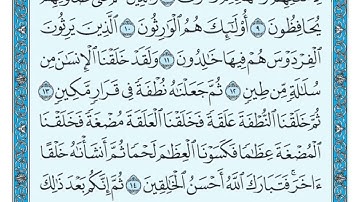 يُحَافِظُونَ ٩ أُوْلَٰٓئِكَ هُمُ ٱلْوَٰرِثُونَ ١٠ ٱلَّذِينَ يَرِثُونَ
ٱلْفِرْدَوْسَ هُمْ فِيهَا خَٰلِدُونَ ١١ وَلَقَدْ خَلَقْنَا ٱلْإِنسَٰنَ مِن
سُلَٰلَةٍ مِّن طِينٍ ١٢ ثُمَّ جَعَلْنَٰهُ نُطْفَةً فِى قَرَارٍ مَّكِينٍ ١٣
ثُمَّ خَلَقْنَا ٱلنُّطْفَةَ عَلَقَةً فَخَلَقْنَا ٱلْعَلَقَةَ مُضْغَةً فَخَلَقْنَا
ٱلْمُضْغَةَ عِظَٰمًا فَكَسَوْنَا ٱلْعِظَٰمَ لَحْمًا ثُمَّ أَنشَأْنَٰهُ خَلْقًا
ءَاخَرَ ۚ فَتَبَارَكَ ٱللَّهُ أَحْسَنُ ٱلْخَٰلِقِينَ ١٤ ثُمَّ إِنَّكُم بَعْدَ ذَٰلِكَ